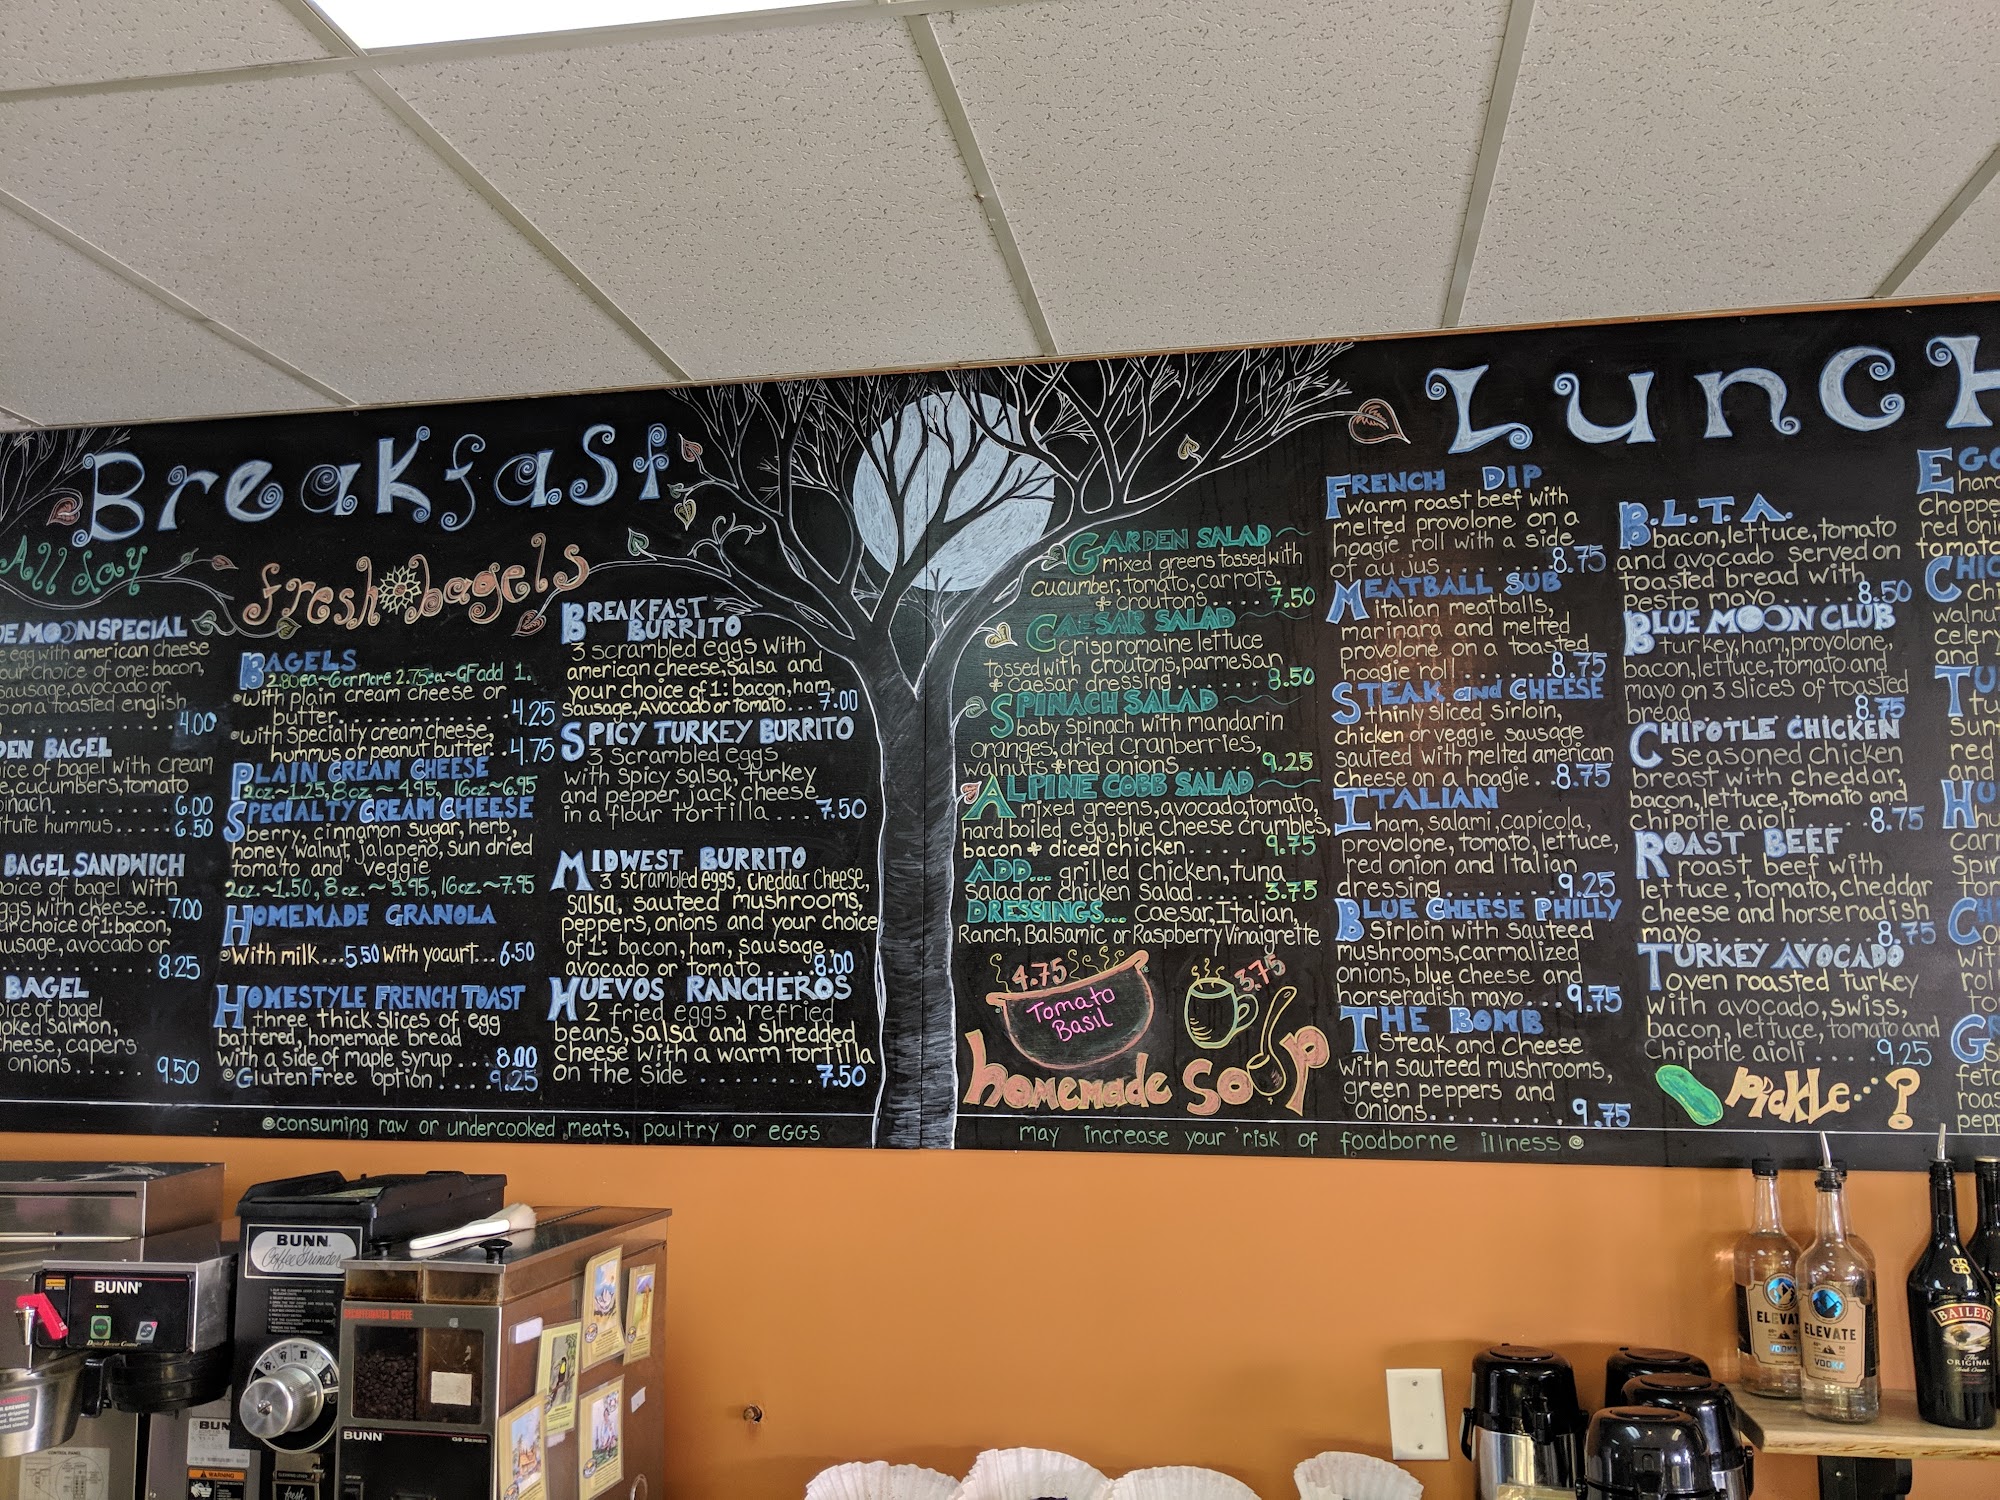 Breakfast
All day
MOON SPECIAL
egg with american cheese
your choice of one: bacon,
sausage, avocado or
on a toasted english
4.00
BAGEL
of bagel with cream
cucumbers, tomato
6.00
hummus.....6.50
BAGEL SANDWICH
choice of bagel with
eggs with cheese..7.00
choice of 1: bacon,
sausage, avocado or
8.25
BAGEL
of bagel
salmon,
cheese, capers
onions....
9.50
fresh bagels
BAGELS
2.80ea~6 or more 2.75ea~GF add 1.
with plain cream cheese or
butter............4.25
with specialty cream cheese,
hummus or peanut butter..4.75
PLAIN CREAM CHEESE
2oz~1.25, 8oz~4.95, 16oz~6.95
SPECIALTY CREAM CHEESE
berry, cinnamon sugar, herb,
honey walnut, jalapeño, sun dried
tomato and veggie
2oz~1.50, 8oz.~5.95, 16oz~7.95
HOMEMADE GRANOLA
With milk...5.50 with yogurt...6.50
HOMESTYLE FRENCH TOAST
three, thick slices of egg
battered, homemade bread
with a side of maple syrup...8.00
Gluten Free option.....9.25
BREAKFAST
BURRITO
3 scrambled eggs with
american cheese, salsa and
your choice of 1: bacon, ham,
sausage, Avocado or tomato...7.00
SPICY TURKEY BURRITO
3 Scrambled eggs
with spicy salsa, turkey
and pepper jack cheese
in a flour tortilla...7.50
MIDWEST BURRITO
3 scrambled eggs, cheddar cheese,
salsa, sauteed mushrooms,
peppers, onions and your choice
of 1: bacon, ham, sausage,
avocado or tomato....8.00
HUEVOS RANCHEROS
2 fried eggs, refried
beans, salsa and shredded
cheese with a warm tortilla
on the side.........7.50
consuming raw or undercooked meats, poultry or eggs
GARDEN SALAD
mixed greens tossed with
cucumber, tomato, carrots,
& croutons.....7.50
CAESAR SALAD
Crisp romaine lettuce
tossed with croutons, parmesan
& caesar dressing.....8.50
SPINACH SALAD
baby spinach with mandarin
oranges, dried cranberries,
walnuts & red onions.....9.25
ALPINE COBB SALAD
mixed greens, avocado, tomato,
hard boiled egg, blue cheese crumbles,
bacon & diced chicken.....9.75
ADD... grilled chicken, tuna
salad or chicken salad...3.75
DRESSINGS... Caesar, Italian,
Ranch, Balsamic or Raspberry Vinaigrette
4.75
3.75
Tomato
Basil
homemade soup
may increase your risk of foodborne illness
Lunch
FRENCH DIP
warm roast beef with
melted provolone on a
hoagie roll with a side
of au jus........8.75
MEATBALL SUB
italian meatballs,
marinara and melted
provolone on a toasted
hoagie roll......8.75
STEAK and CHEESE
thinly sliced sirloin,
chicken or veggie sausage
sauteed with melted american
cheese on a hoagie..8.75
ITALIAN
ham, salami, capicola,
provolone, tomato, lettuce,
red onion and Italian
dressing.........9.25
BLUE CHEESE PHILLY
Sirloin with sauteed
mushrooms, carmalized
onions, blue cheese and
horseradish mayo...9.75
THE BOMB
Steak and Cheese
with sauteed mushrooms,
green peppers and
onions...........9.75
B.L.T.A.
bacon, lettuce, tomato
and avocado served on
toasted bread with
pesto mayo......8.50
BLUE MOON CLUB
turkey, ham, provolone,
bacon, lettuce, tomato and
mayo on 3 slices of toasted
bread..........8.75
CHIPOTLE CHICKEN
Seasoned chicken
breast with cheddar,
bacon, lettuce, tomato and
chipotle aioli.....8.75
ROAST BEEF
roast beef with
lettuce, tomato, cheddar
cheese and horseradish
mayo...........8.75
TURKEY AVOCADO
oven roasted turkey
with avocado, swiss,
bacon, lettuce, tomato and
Chipotle aioli.....9.25
Pickle...?
EGG
hard
Chopped
red
CHIC
walnut
celery
and
red
and
with
BUNN
BUNN
Coffee Grinder
DECAFFEINATED COFFEE
BUNN
BUNN
WARNING
ELEVATE
VODKA
ELEVATE
VODKA
BAILEYS
The
ORIGINAL